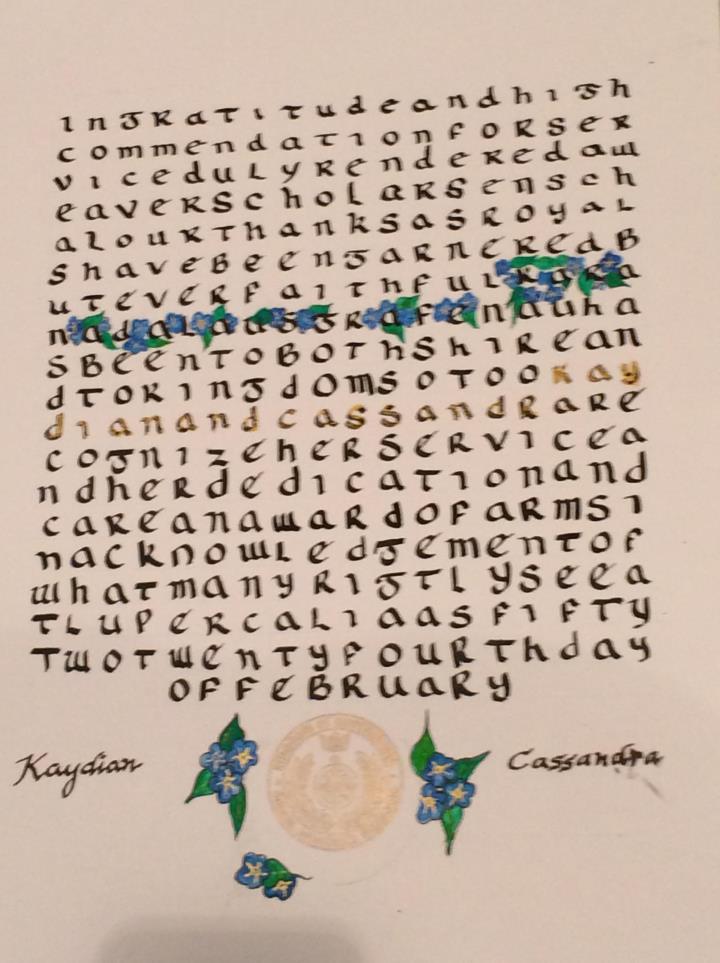 ingratitudeandhigh
commendationforser
vicedulyrenderedaw
eaverscholarsensch
alourthanksasroyal
shavebeengarneredb
uteverfaithfulrara
nadalausgrafenauha
sbeentobothshirean
dtokingdomsotookay
dianandcassandrare
cognizeherservicea
ndherdedicationand
careanawardofarmsi
nacknowledgementof
whatmanyrigtlyseea
tlupercaliaasfifty
twotwentyfourthday
offebruary
Kaydian
Cassandra